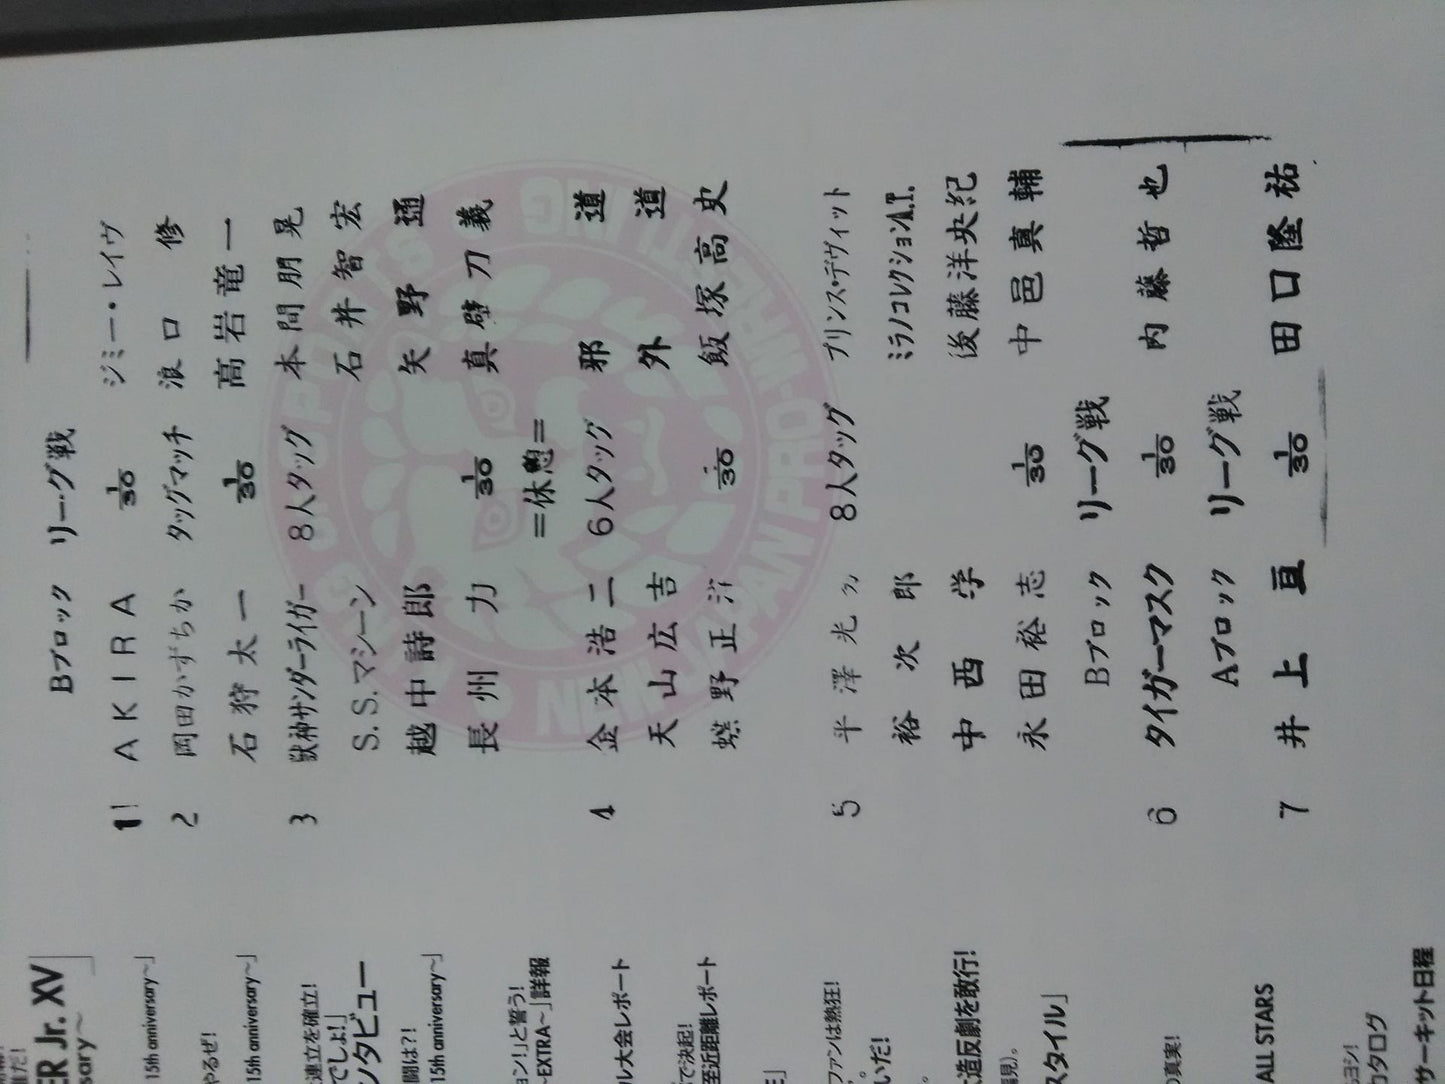 Bブロック リーグ戦
1! AKIRA 1/30 ジミー・レイヴ
2 岡田かずちか タッグマッチ 浪口 修
石狩太一 1/30 高岩竜一
3 獣神サンダーライガー 8人タッグ 本間朋晃
S.S.マシーン 石井智宏
越中詩郎 矢野 通
長州 力 1/30 真壁刀義
=休憩=
4 金本浩二 6人タッグ 邪道
天山広吉 外道
蝶野正洋 1/30 飯塚高史
5 平澤光 8人タッグ プリンス・デヴィット
裕次郎 ミラノコレクションA.T.
中西 学 後藤洋央紀
永田裕志 1/30 中邑真輔
Bブロック リーグ戦
6 タイガーマスク 1/30 内藤哲也
Aブロック リーグ戦
7 井上 亘 1/30 田口隆祐
ER Jr. XV
sary～」
15th anniversary～」
やるぜ!
15th anniversary～」
連立を確立!
でしょ!」
ンタビュー
闘は?!
15th anniversary～」
ョン!」と誓う!
～EXTRA～」詳報
ル大会レポート
で決起!
至近距離レポート
ファンは熱狂!
いだ!
造反劇を敢行!
スタイル」
の真実!
ALL STARS
ヨシ!
カタログ
サーキット日程
NEW JAPAN PRO-WRESTLING
SPORTS